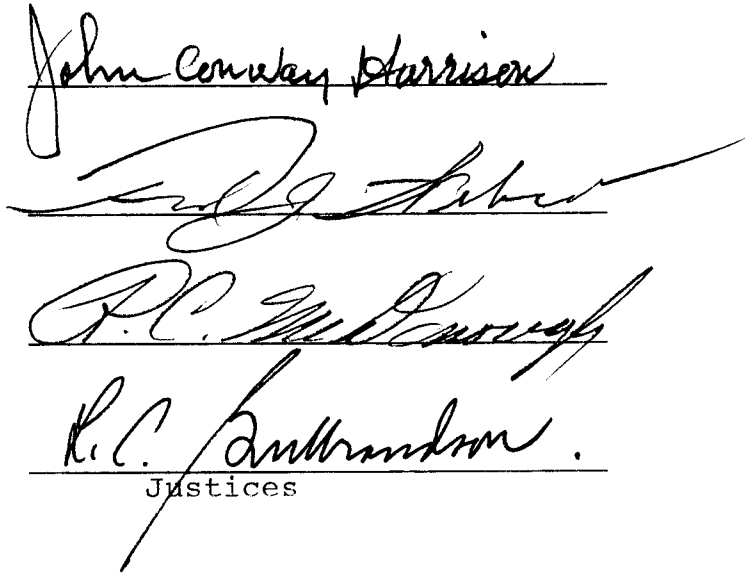 John Conway Harrison
Fred J. Weber
R. C. McDonough
L. C. Gulbrandson.
Justices